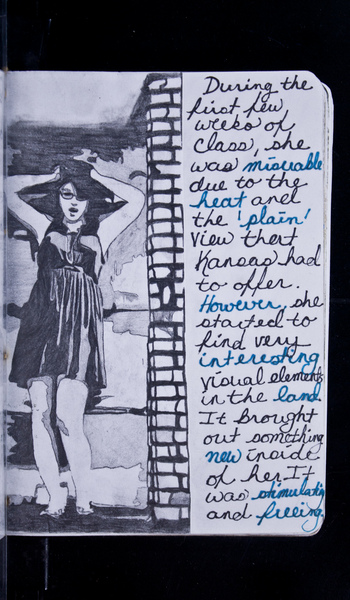 During the
first few
weeks of
class, she
was miserable
due to the
heat and
the 'plain'
view that
Kansas had
to offer.
However, she
started to
find very
interesting
visual elements
in the land.
It brought
out something
new inside
of her. It
was stimulating
and freeing.